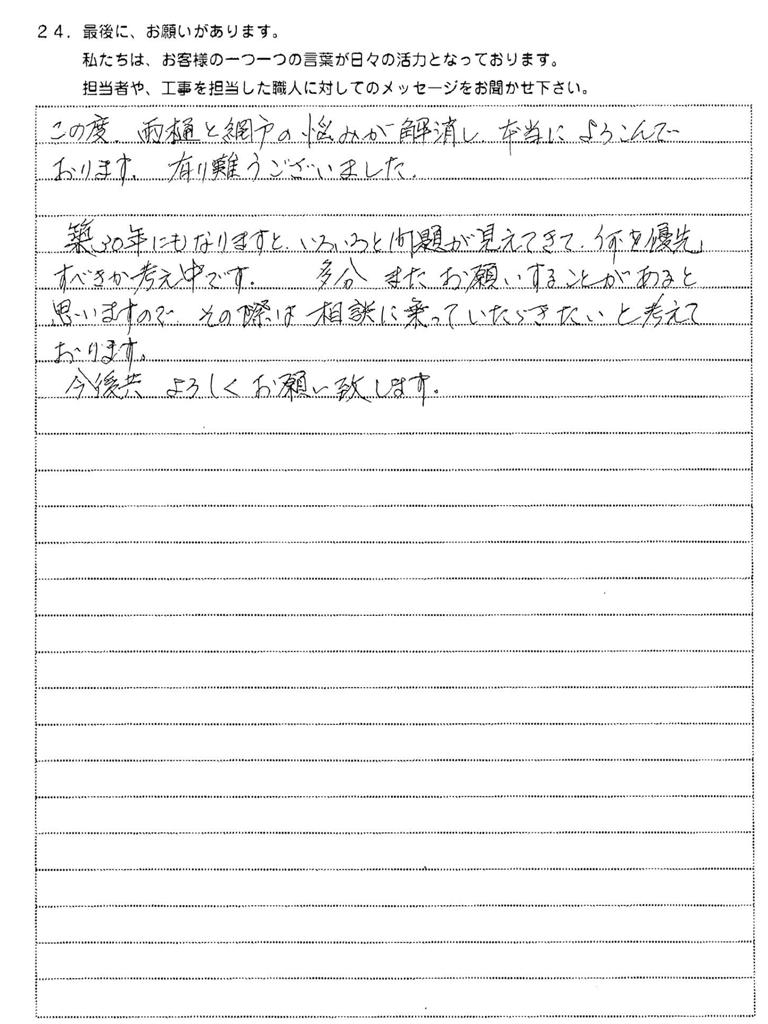 24. 最後に、お願いがあります。
私たちは、お客様の一つ一つの言葉が日々の活力となっております。
担当者や、工事を担当した職人に対してのメッセージをお聞かせ下さい。
この度、雨樋と網戸の悩みが解消し、本当によろこんで
おります。 有り難うございました。
築30年にもなりますと、いろいろと問題が見えてきて、何を優先
すべきか考え中です。 多分 またお願いすることがあると
思いますので、その際は相談に乗っていただきたいと考えて
おります。
今後共 よろしくお願い致します。